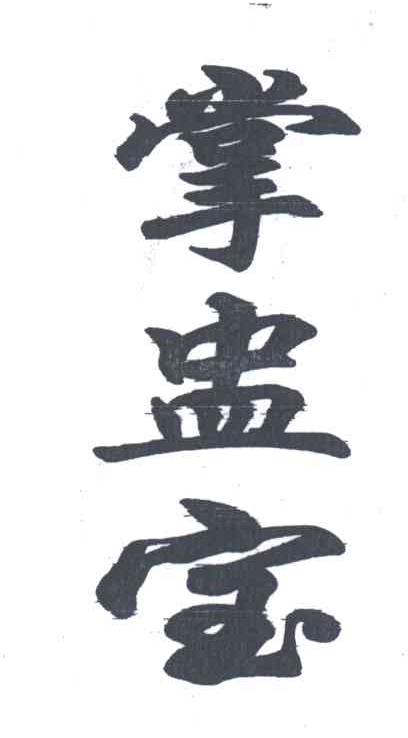 掌盅宝